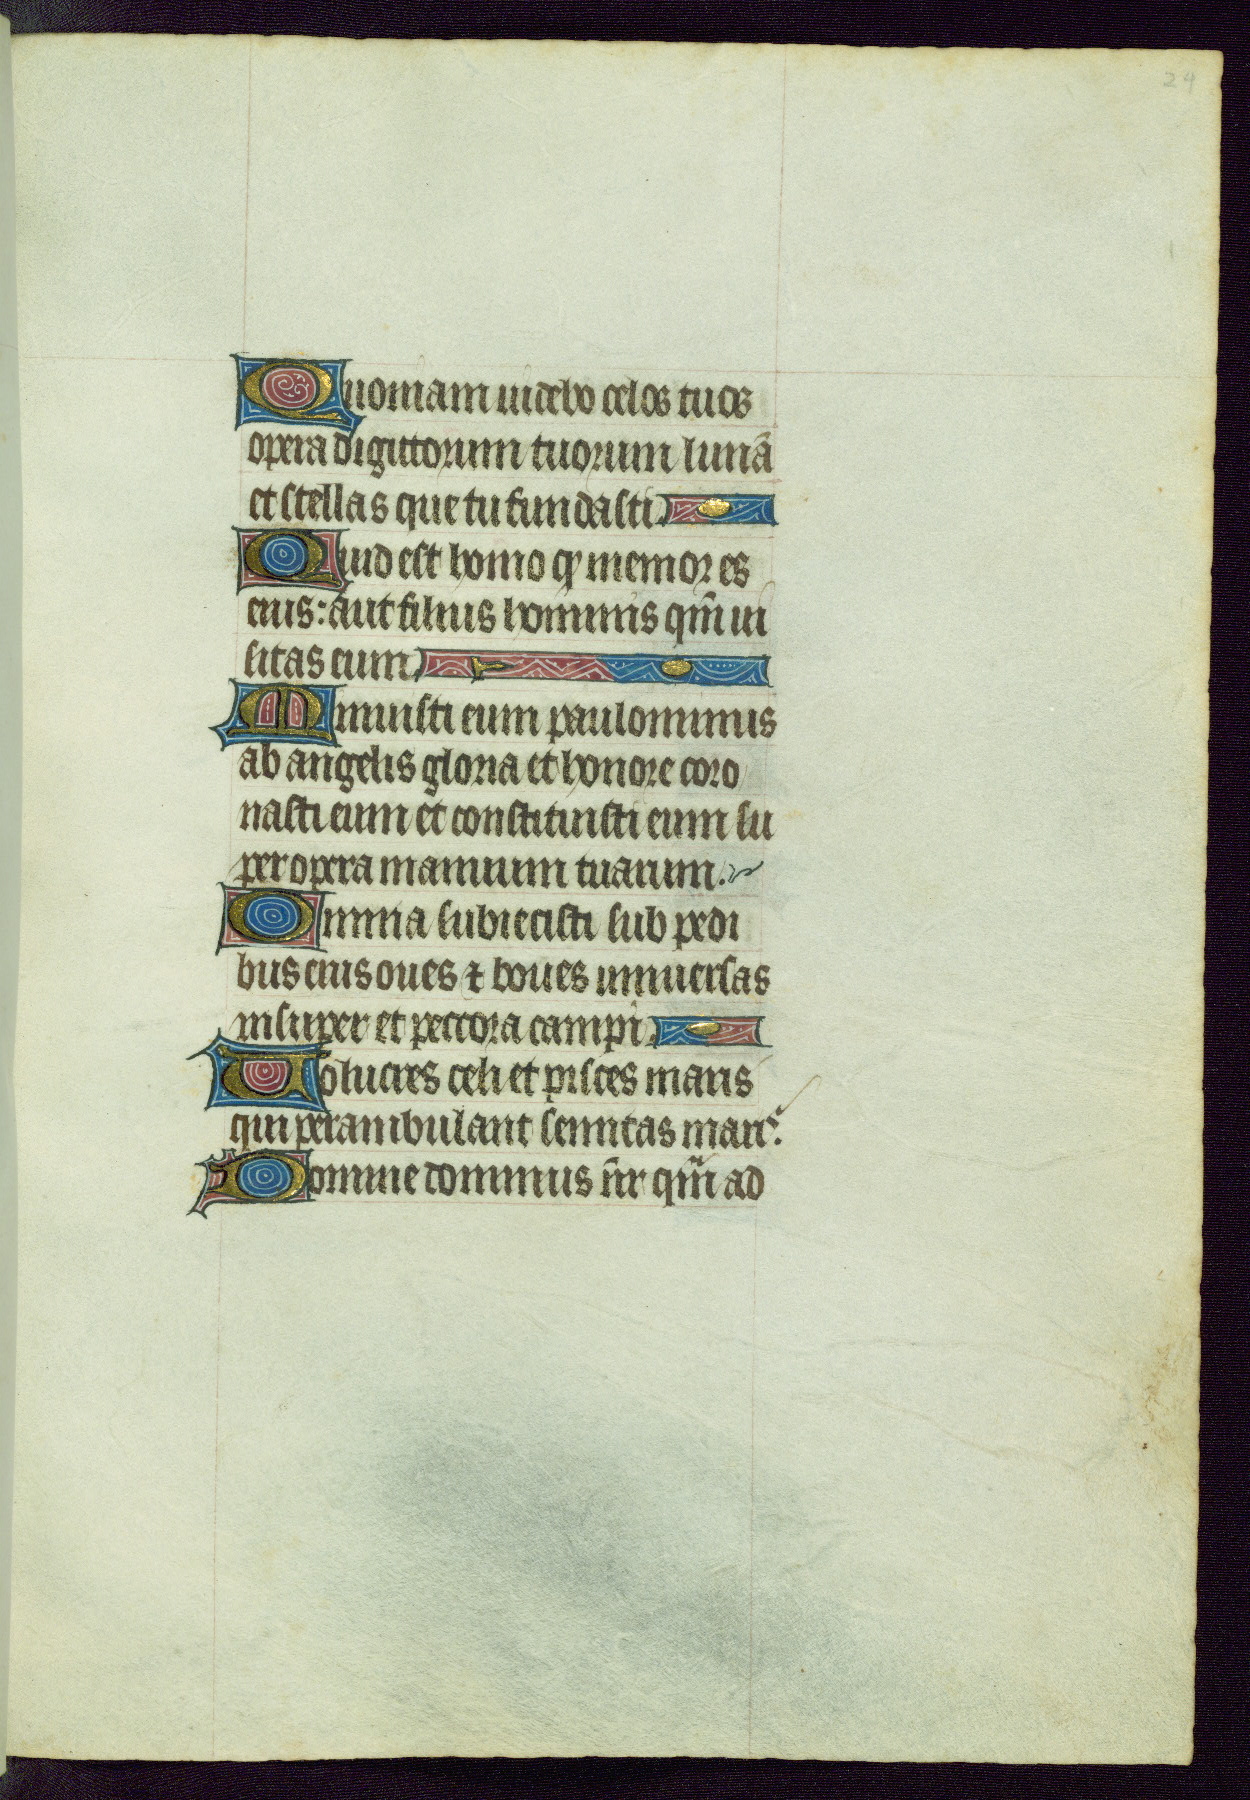 24
Quoniam uidebo celos tuos
opera digittorum tuorum lunā
et stellas que tu fundasti.
Quid est homo qͥ memor es
eius: aut filius hominis qm̄ ui
sitas eum.
Minuisti eum paulominus
ab angelis gloria et honore coro
nasti eum et constituisti eum su
per opera manuum tuarum.
Omnia subiecisti sub pedi
bus eius oues ⁊ boues uniuersas
insuper et peccora campi.
Volucres celi et pisces maris
qui perambulant semitas maris.
Domine dominus nr̄ qm̄ ad